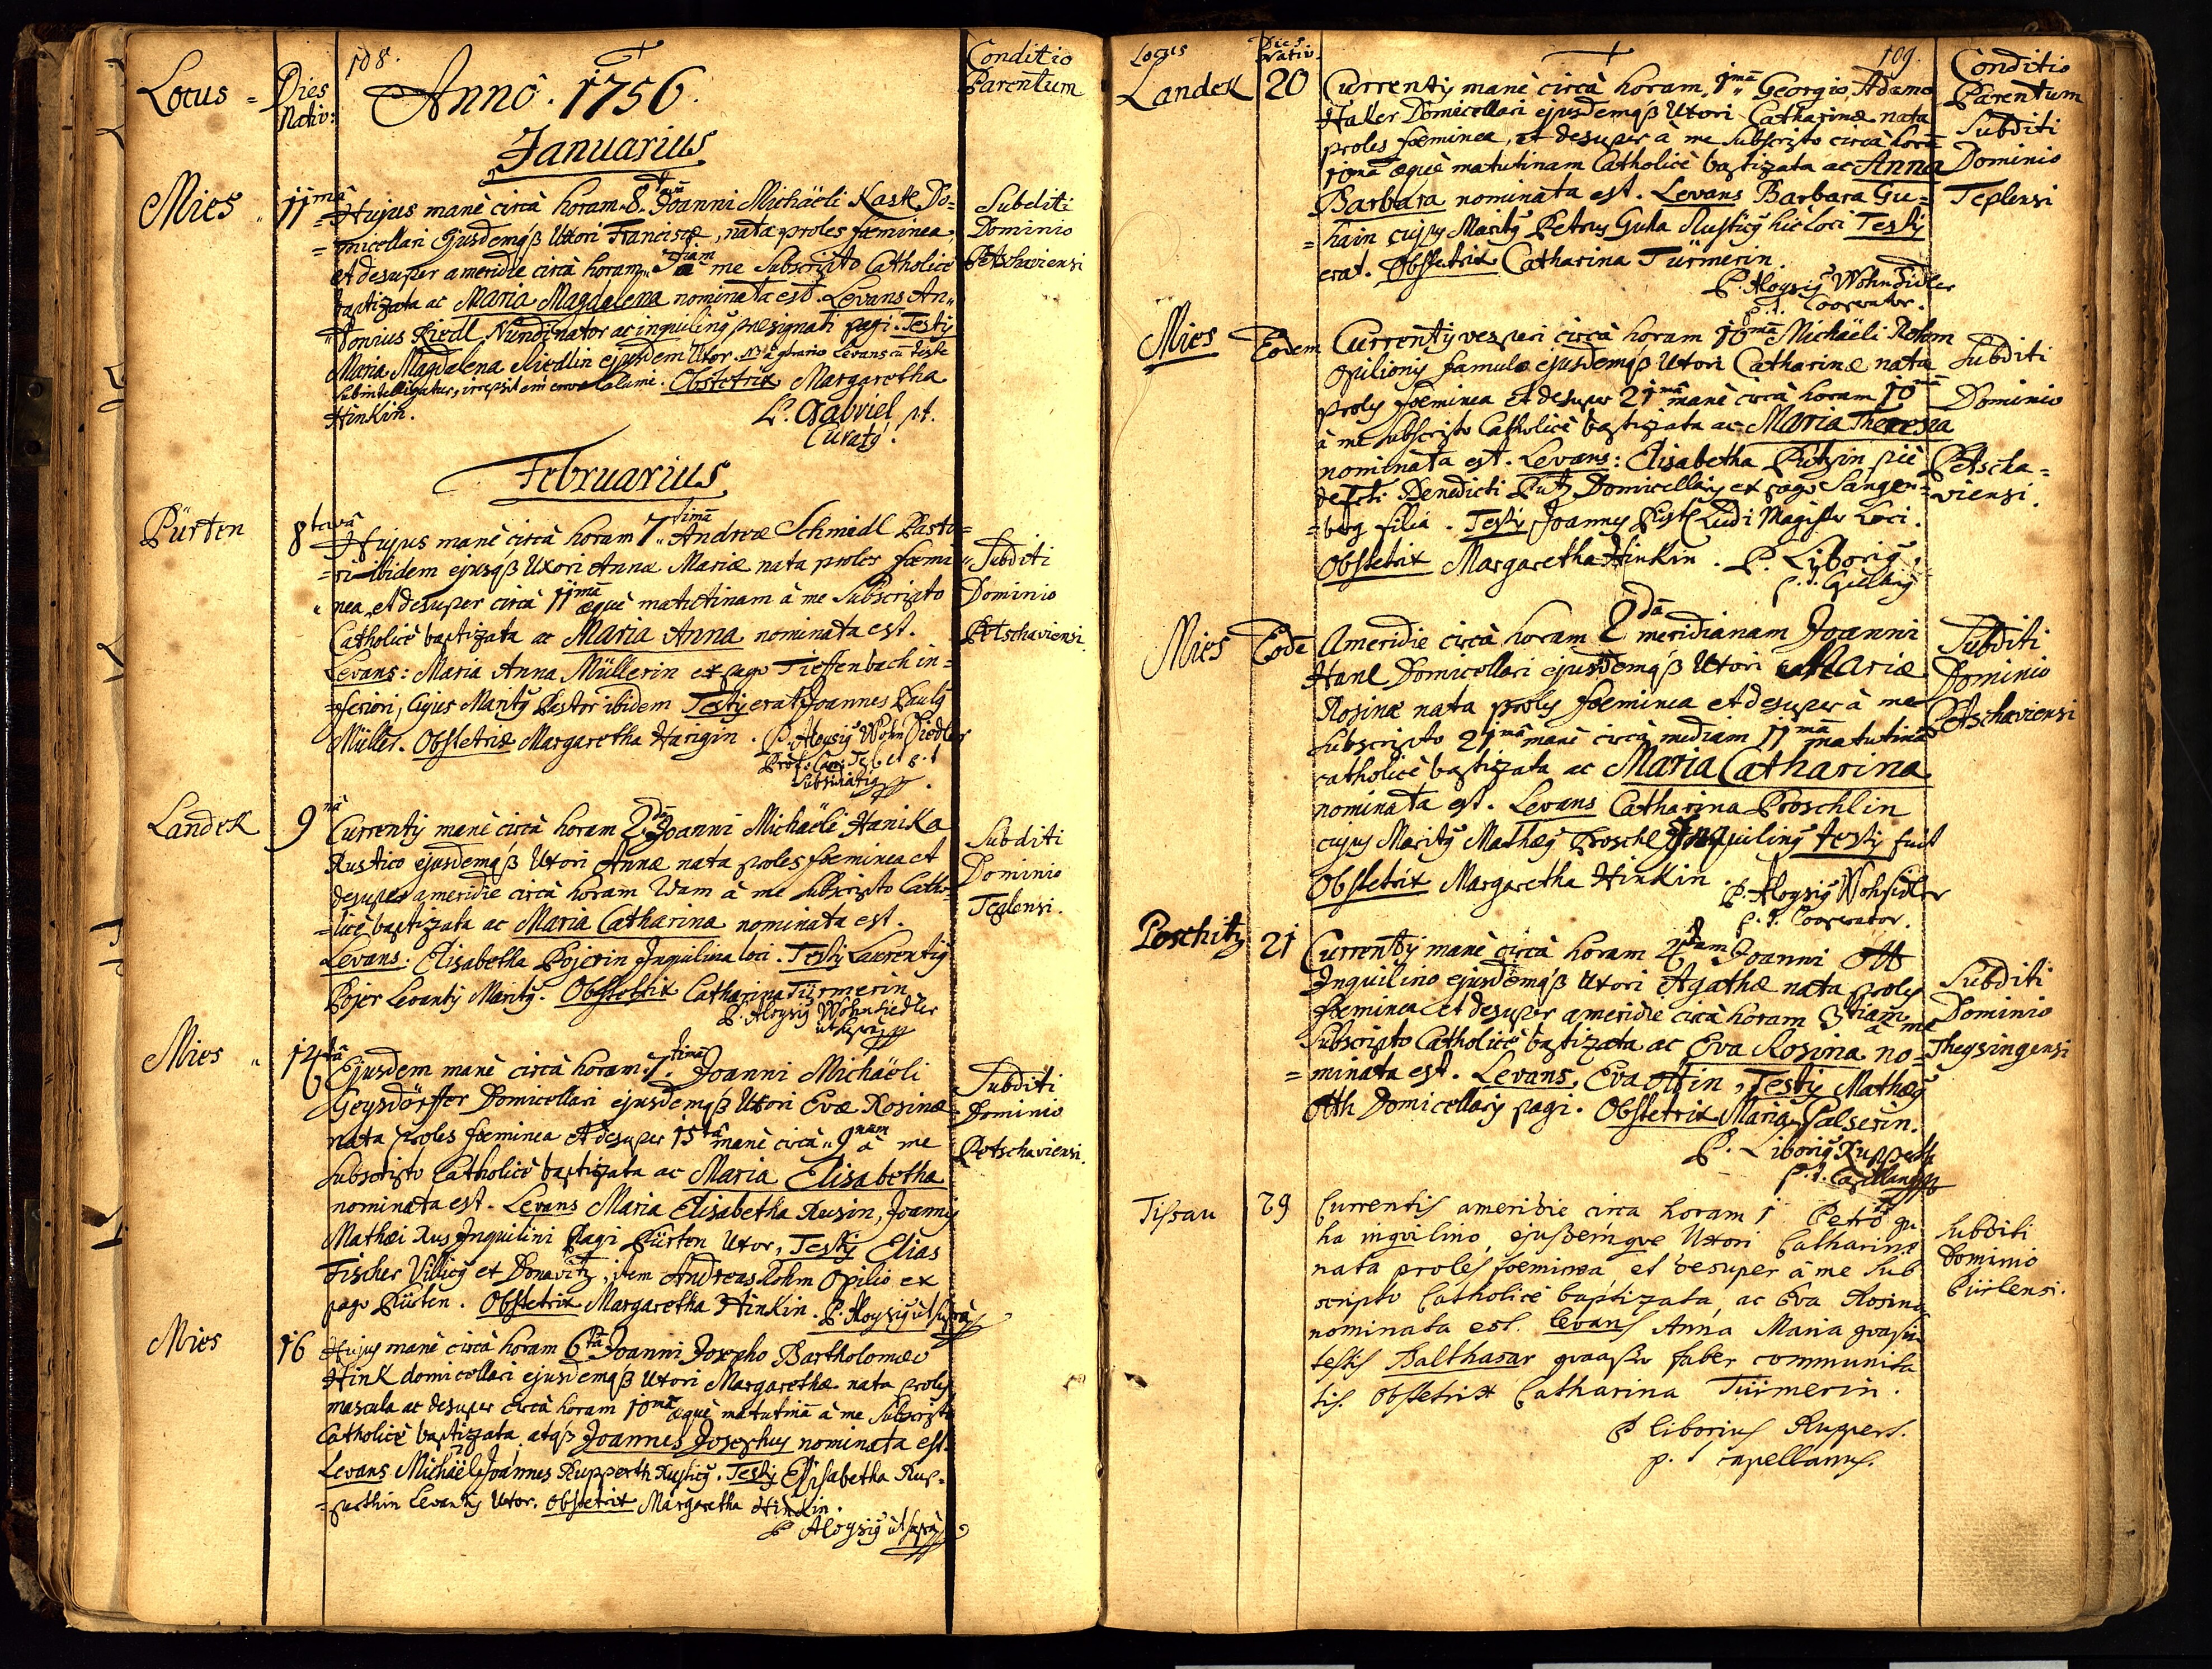 108.
Locus = Dies Nativ: Anno. 1756. Conditio Parentum
Januarius
Mies 11mâ Hujus manè circà horam 8. Joanni Michäeli Kastl Do=
=micellari Ejusdemqß Uxori Franciscæ, nata proles fœminea,
et desuper ameridie circà horam 3tiam à me Subscripto Catholicè
baptizata ac Maria Magdalena nominata est. Levans An=
=tonius Riedl Nundinator ac inquilinq præsignati pagi. Testis
Maria Magdalena Riedlin ejusdem Uxor. NB à Levans cū teste
Subintelligatur, irrepsit calami. Obstetrix Margaretha
Hinkin. P. Gabriel p.t.
Curatq.
Subditi
Dominio
Petschaviensi
Februarius
Pürten 8tavâ Hujus manè circà horam 7timâ Andreæ Schmidl Pasto=
=ri ibidem ejusqß Uxori Annæ Mariæ nata proles fœmi=
=nea, et desuper circà 11mâ æquè matutinam à me Subscripto
Catholicè baptizata ac Maria Anna nominata est.
Levans: Maria Anna Müllerin ex pago Tieffenbach in=
=feriori, Cujus Maritq Pastor ibidem Testis erat Joannes Paulq
Müller. Obstetrix Margaretha Harigin. P. Aloysiq Wohnsiedler
Subsidiariq.
Subditi
Dominio
Petschaviensi.
Landek 9nâ Currentis manè circà horam 2dâ Joanni Michäeli Hanika
Rustico ejusdemqß Uxori Annæ nata proles fœminea et
desuper ameridie circà horam 2dam à me Subscripto Catho=
=licè baptizata ac Maria Catharina nominata est.
Levans. Elisabetha Pojerin Inquilina loci. Testis Laurentiq
Pojer Levantis Maritq. Obstetrix Catharina Türmerin
P. Aloysiq Wohnsiedler
ut supra
Subditi
Dominio
Teplensi.
Mies 14tâ Ejusdem manè circà horam 7timâ Joanni Michäeli
Geysdörffer Domicellari ejusdemqß Uxori Evæ Rosinæ
nata proles fœminea et desuper 15tâ manè circà 9nam à me
Subscripto Catholicè baptizata ac Maria Elisabetha
nominata est. Levans Maria Elisabetha Rusin, Joannis
Mathæi Rus Inquilini Pagi Pürten Uxor, Testis Elias
Fischer Villicq et Donavitz, item Andreas Rohm Opilio ex
pago Pürten. Obstetrix Margaretha Hinkin. P. Aloysiq ut supra
Subditi
Dominio
Petschaviensi.
Mies 16 Hujus manè circà horam 6tâ Joanni Josepho Bartholomæo
Hink domicellari ejusdemqß Uxori Margarethæ nata proles
mascula ac desuper circà horam 10mâ æquè matutinā à me Subscripto
Catholicè baptizata atqß Joannes Josephus nominata est.
Levans Michäel Joannes Rupperth Rusticq. Testis Elisabetha Rup=
=perthin Levantis Uxor. Obstetrix Margaretha Hinkin.
P. Aloysiq ut supra
109.
Locus Dies Nativ. Conditio Parentum
Landek 20 Currentis manè circà horam 1mâ Georgio Adamo
Haller Domicellari ejusdemqß Uxori Catharinæ nata
proles fœminea, et desuper à me Subscripto circà horā
10mâ æquè matutinam Catholicè baptizata ac Anna
Barbara nominata est. Levans Barbara Gu=
=hain cujus Maritq Petrus Guha Rusticq hic loci Testis
erat. Obstetrix Catharina Türmerin.
P. Aloysiq Wohnsidler
p.t. Cooperator.
Subditi
Dominio
Teplensi
Mies Eodem Currentis vesperi circà horam 10mâ Michäeli Rohm
Opilionis famulo ejusdemqß Uxori Catharinæ nata
proles fœminea et desuper 21mâ manè circà horam 10mâ
à me Subscripto Catholicè baptizata ac Maria Theresia
nominata est. Levans: Elisabetha Putzin piè
defcti Benedicti Putz Domicellaris ex pago Sanger=
=berg filia. Testis Joannes Ludi Magister loci.
Obstetrix Margaretha Hinkin. P. Liboriq,
Subditi
Dominio
Petscha=
=viensi.
Mies Eodē Ameridie circà horam 2dâ meridianam Joanni
Hanl Domicellari ejusdemqß Uxori Mariæ
Rosinæ nata proles fœminea et desuper à me
Subscripto 21mâ manè circà mediam 11mâ matutinā
catholicè baptizata ac Maria Catharina
nominata est. Levans Catharina Proschlin
cujus Maritq Mathæq Proschl Inquilinq testis fuit
Obstetrix Margaretha Hinkin. P. Aloysiq Wohsidler
p.t. Cooperator.
Subditi
Dominio
Petschaviensi
Poschitz 21 Currentis manè circà horam 4tam Joanni Ott
Inquilino ejusdemqß Uxori Agathæ nata proles
fœminea et desuper ameridie circà horam 3tiam à me
Subscripto Catholicè baptizata ac Eva Rosina no=
=minata est. Levans, Eva Ottin, Testis Mathæq
Otth Domicellaris pagi. Obstetrix Maria Salserin.
P. Liboriq Rupperth
p.t. Capellanq
Subditi
Dominio
Theysingensi
Tissau 29 Currentis ameridie circa horam 1 Petro gu
ha inqvilino, ejusdemqve Uxori Catharinæ
nata proles fœminea et desuper à me Sub
scripto Catholicè baptizata, ac Eva Rosina
nominata est. Levans Anna Maria
testis Balthasar faber communita
tis. Obstetrix Catharina Türmerin.
P liborius Ruppert.
p. t capellanus.
Subditi
Dominio